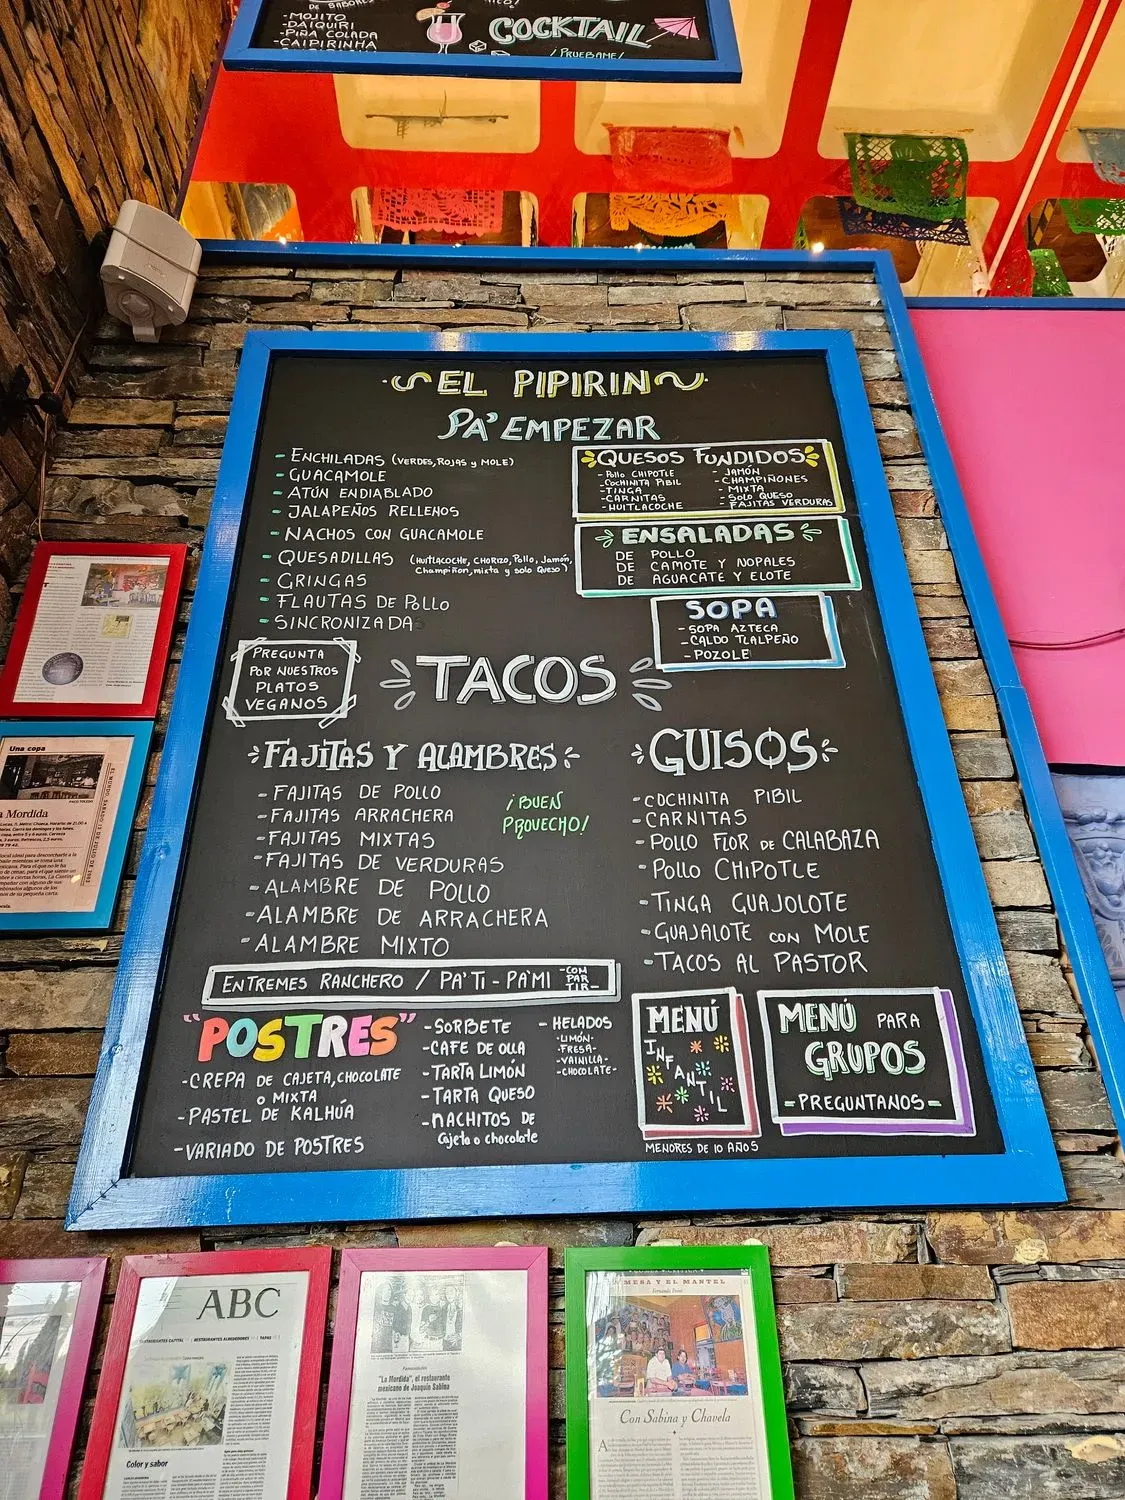 -MOJITO
-DAIQUIRI
-PIÑA COLADA
-CAIPIRINHA
COCKTAIL
¡PRUEBAME!
EL PIPIRIN
PA' EMPEZAR
- ENCHILADAS (VERDES, ROJAS y MOLE)
- GUACAMOLE
- ATÚN ENDIABLADO
- JALAPEÑOS RELLENOS
- NACHOS CON GUACAMOLE
- QUESADILLAS (HUITLACOCHE, CHORIZO, Pollo, Jamón,
Champiñon, mixta y solo Queso)
- GRINGAS
- FLAUTAS DE POLLO
- SINCRONIZADA
QUESOS FUNDIDOS
- Pollo CHIPOTLE
- COCHINITA PIBIL
- TINGA
- CARNITAS
- HUITLACOCHE
- JAMÓN
- CHAMPIÑONES
- MIXTA
- SOLO QUESO
- FAJITAS VERDURAS
ENSALADAS
DE POLLO
DE CAMOTE Y NOPALES
DE AGUACATE Y ELOTE
SOPA
- SOPA AZTECA
- CALDO TLALPEÑO
- POZOLE
PREGUNTA
POR NUESTROS
PLATOS
VEGANOS
TACOS
FAJITAS Y ALAMBRES
- FAJITAS DE POLLO
- FAJITAS ARRACHERA
- FAJITAS MIXTAS
- FAJITAS DE VERDURAS
- ALAMBRE DE POLLO
- ALAMBRE DE ARRACHERA
- ALAMBRE MIXTO
¡BUEN
PROVECHO!
GUISOS
- COCHINITA PIBIL
- CARNITAS
- POLLO FLOR DE CALABAZA
- POLLO CHIPOTLE
- TINGA GUAJOLOTE
- GUAJALOTE CON MOLE
- TACOS AL PASTOR
ENTREMES RANCHERO / PA' TI - PA' MI -COM
PAR
TIR-
"POSTRES"
- CREPA DE CAJETA, CHOCOLATE
O MIXTA
- PASTEL DE KALHÚA
- VARIADO DE POSTRES
- SORBETE
- CAFE DE OLLA
- TARTA LIMÓN
- TARTA QUESO
- NACHITOS DE
Cajeta o chocolate
- HELADOS
-LIMÓN-
-FRESA-
-VAINILLA-
-CHOCOLATE-
MENÚ
INFANTIL
MENORES DE 10 AÑOS
MENÚ PARA
GRUPOS
- PREGUNTANOS -
Una copa
a Mordida
ABC
Color y sabor
"La Mordida", el restaurante
mexicano de Joaquín Sabina
MESA Y EL MANTEL
Con Sabina y Chavela